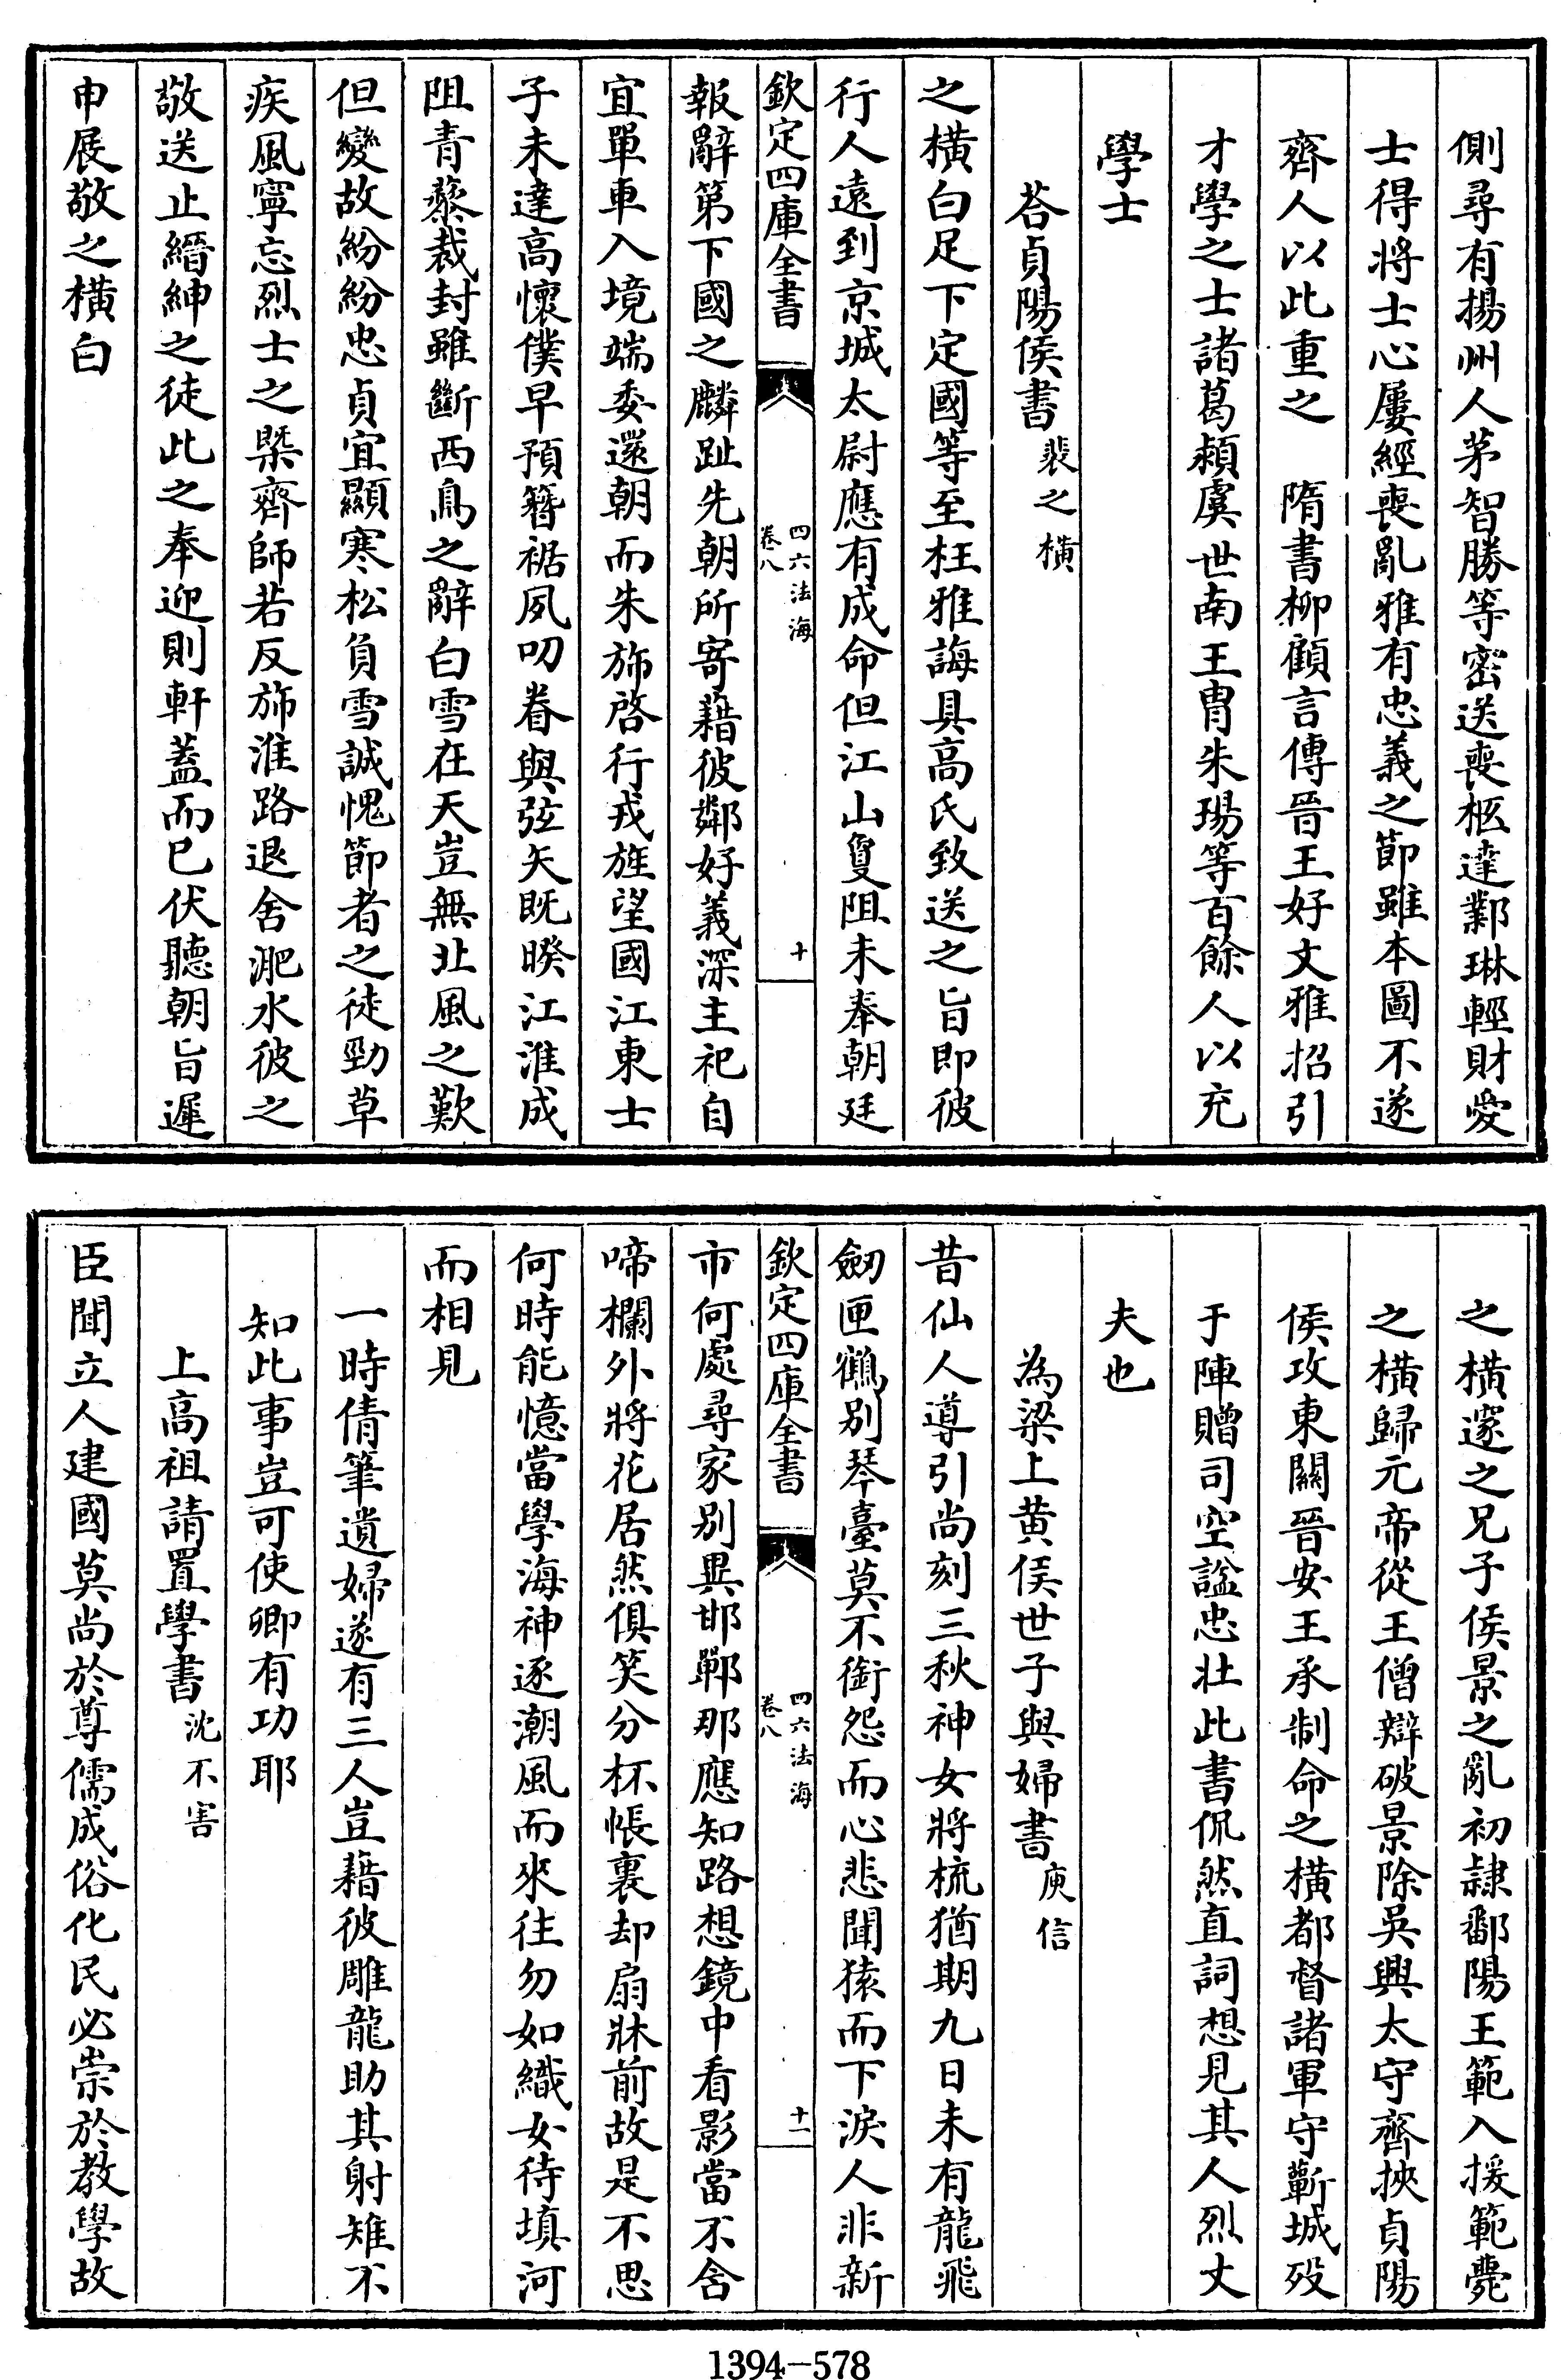 側尋有揚州人茅智勝等密送喪柩達鄴琳輕財愛
士得將士心屢經喪亂雅有忠義之節雖本圖不遂
齊人以此重之　隋書柳顧言傳晉王好文雅招引
才學之士諸葛潁虞世南王胄朱瑒等百餘人以充
學士
荅貞陽侯書裴之橫
之橫白足下定國等至枉雅誨具高氏致送之旨即彼
行人遠到京城太尉應有成命但江山敻阻未奉朝廷
欽定四庫全書
四六法海
卷八
十
報辭第下國之麟趾先朝所寄藉彼鄰好義深主祀自
宜單車入境端委還朝而朱斾啓行戎旌望國江東士
子未達高懷僕早預簪裾夙叨眷與弦矢既暌江淮成
阻青藜裁封雖斷西鳥之辭白雪在天豈無北風之歎
但變故紛紛忠貞宜顯寒松負雪誠愧節者之徒勁草
疾風寧忘烈士之槩齊師若反斾淮路退舍淝水彼之
敬送止縉紳之徒此之奉迎則軒蓋而已伏聽朝旨遲
申展敬之橫白
之橫邃之兄子侯景之亂初隸鄱陽王範入援範薨
之橫歸元帝從王僧辯破景除吳興太守齊挾貞陽
侯攻東關晉安王承制命之橫都督諸軍守蘄城歿
于陣贈司空諡忠壯此書侃然直詞想見其人烈丈
夫也
為梁上黄侯世子與婦書庾信
昔仙人導引尚刻三秋神女將梳猶期九日未有龍飛
劒匣鶴別琴臺莫不銜怨而心悲聞猿而下淚人非新
欽定四庫全書
四六法海
卷八
十一
市何處尋家別異邯鄲那應知路想鏡中看影當不含
啼欄外將花居然俱笑分杯帳裏却扇牀前故是不思
何時能憶當學海神逐潮風而來往勿如織女待填河
而相見
一時倩筆遺婦遂有三人豈藉彼雕龍助其射雉不
知此事豈可使卿有功耶
上高祖請置學書沈不害
臣聞立人建國莫尚於尊儒成俗化民必崇於教學故
1394-578